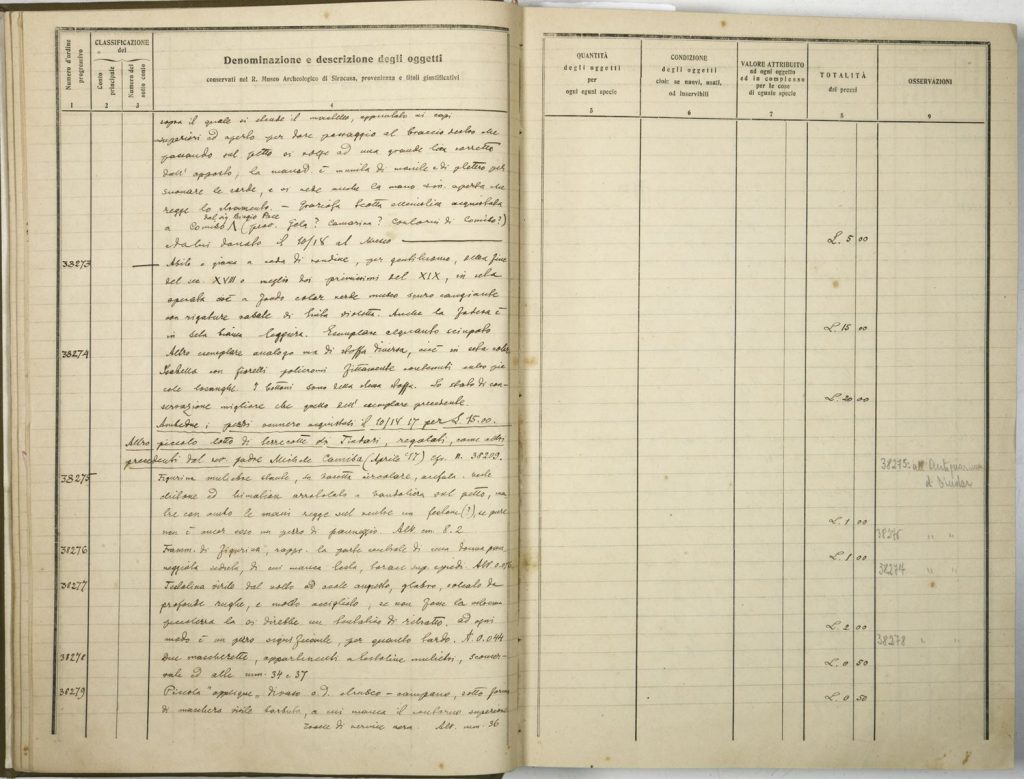 Numero d'ordine progressivo
CLASSIFICAZIONE del
Conto principale
Numero del sotto conto
Denominazione e descrizione degli oggetti
conservati nel R. Museo Archeologico di Siracusa, provenienza e titoli giustificativi
1 2 3 4
sopra il quale si stende il mantello, appuntato ai capi
superiori ed aperto per dare passaggio al braccio destro che
passando sul petto si volge ad una grande lira sorretta
dall' opposto; la mano è munita di monile e di plettro per
suonare le corde, e si vede anche la mano sin. aperta che
regge lo strumento. — Graziosa acquistata
dal sig. Biagio Pace
a Comiso (prov. Gela? Camarina? contorni di Comiso?)
e da lui donata il 10/18 al Museo
33273 — Abito o giacca a coda di rondine, per gentiluomo, della fine
del sec. XVIII o meglio dei primissimi del XIX, in seta
operata cioè a fondo color verde museo scuro cangiante
con rigature rabate di tinta violetta. Anche la fodera è
in seta bianca leggera. Esemplare alquanto sciupato
38274 Altro esemplare analogo ma di stoffa diversa, cioè in seta color
Isabella con fiorelli policromi fittamente contenuti entro pic-
cole losanghe. I bottoni sono della stessa stoffa. Lo stato di con-
servazione migliore che quello dell' esemplare precedente.
Ambedue i pezzi vennero acquistati il 10/IV 17 per L 75.00.
Altro piccolo lotto di terrecotte da Tindari, regalati, come altri
precedenti dal rev. padre Michele (Aprile '17) cfr. n. 38209.
38275 Figurina muliebre stante, su basetta circolare, acefala veste
chitone ed himation arrotolato a bandoliera sul petto, men-
tre con ambo le mani regge sul ventre un festone (?), se pure
non è ancor esso un pezzo di panneggio. Alt. cm. 8.2
38276 Framm. di figurina, rappr. la parte centrale di una donna pan-
neggiata seduta, di cui manca testa, torace sup. e piedi. Alt 0.056
38277 Testolina virile dal volto ad ovale angusto, glabro, solcato da
profonde rughe, e molto accigliato, se non fosse la
la si direbbe un tentativo di ritratto. ad ogni
modo è un pezzo significante, per quanto tardo. A. 0.044
38278 Due mascherette, appartenenti a testoline muliebri,
ed alte mm. 34 e 37
38279 Piccola "applique" di vaso c.d. etrusco-campano, sotto forma
di maschera virile barbata, a cui manca il contorno superiore
tracce di vernice nera. Alt. mm. 36
QUANTITÀ degli oggetti per ogni egual specie
CONDIZIONE degli oggetti cioè: se nuovi, usati, od inservibili
VALORE ATTRIBUITO ad ogni oggetto ed in complesso per le cose di eguale specie
TOTALITÀ dei prezzi
OSSERVAZIONI
5 6 7 8 9
L. 5 00
L. 15 00
L. 20 00
38275: all' Antiquarium
di Tindari
L. 1 00
38276 " "
L. 1 00
38274 " "
L. 2 00
38278 " "
L. 0 50
L. 0 50